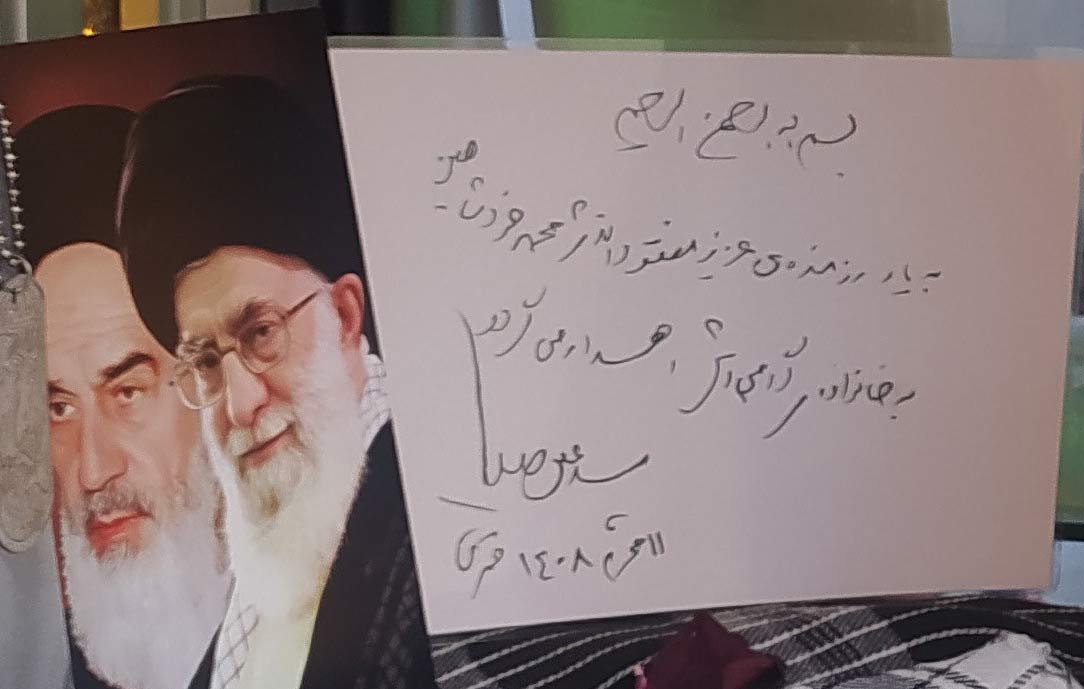 بسم الله الرحمن الرحیم
به یاد رزمنده‌ی عزیز مفقود الاثر محمد
به خانواده‌ی گرامی‌اش اهدا می گردد
سید
۱۱ محرم ۱۴۰۸ قمری